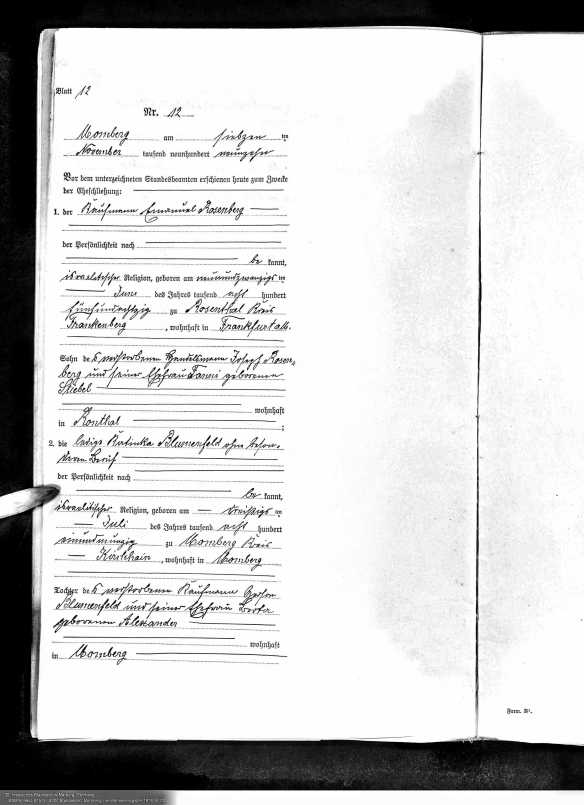 Blatt 12
Nr. 12
Momberg am siebzen ten
November tausend neunhundert neunzehn
Vor dem unterzeichneten Standesbeamten erschienen heute zum Zwecke
der Eheschließung:
1. der Kaufmann Emanuel Rosenberg
der Persönlichkeit nach
be kannt,
israelitischer Religion, geboren am neunundzwanzigsten
Juni des Jahres tausend acht hundert
fünfundachtzig zu Rosenthal Kreis
Frankenberg, wohnhaft in Frankfurt a/M.
Sohn des verstorbenen Handelsmann Joseph Rosen-
berg und seiner Ehefrau Fanni geborenen
Stiebel
wohnhaft
in Rosnthal;
2. die ledige Katinka Blumenfeld ohne beson-
deren Beruf
der Persönlichkeit nach
be kannt,
israelitischer Religion, geboren am dreißigsten
Juli des Jahres tausend acht hundert
einundneunzig zu Momberg Kreis
Kirchhain, wohnhaft in Momberg
Tochter des verstorbenen Kaufmann Gerson
Blumenfeld und seiner Ehefrau Berta
geborenen Alexander
wohnhaft
in Momberg
Form. B¹.